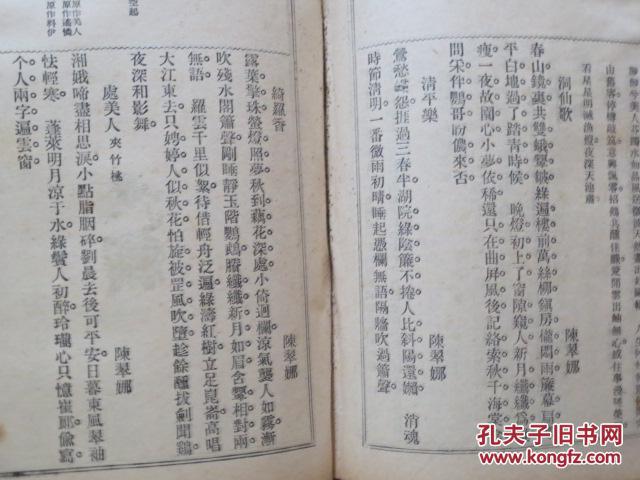 洞仙歌
陳翠娜
春山鏡裏共雙蛾顰皺綠遍樓前萬絲柳鎮房儂悶雨簾幕扃
平白地過了踏青時候　晚燈初上了窗隙窺人新月纖纖爲
瘦一夜故園心小夢依稀還只在曲屏風後記絡索秋千海棠
問宋伴鸚哥盼儂來否
清平樂
陳翠娜
鶯愁怨捱過三春半湖院綠陰簾不捲人比斜陽還嬾　消魂
時節清明一番微雨初晴睡起憑欄無語隔牆吹過簫聲
綺羅香
陳翠娜
露葉擎珠螢燈照夢秋到藕花深處小倚迴欄涼氣襲人如霧漸
吹殘水閣簫聲剛睡靜玉階鸚鵡賸纖纖新月如眉含顰相對兩
無語　羅雲千里似縠待借輕舟泛遍綠濤紅樹立足崑崙高唱
大江東去只娉婷人似秋花怕旋被罡風吹墮趁餘醺拔劍聞鷄
夜深和影舞
虞美人 夾竹桃
陳翠娜
湘娥啼盡相思淚小點脂胭碎劉晨去後可平安日暮東風翠袖
怯輕寒　蓬萊明月涼于水綠鬢人初醉玲瓏心只憶崔郎偷寫
个人兩字遍雲窗
原作美人
孔夫子旧书网
www.kongfz.com